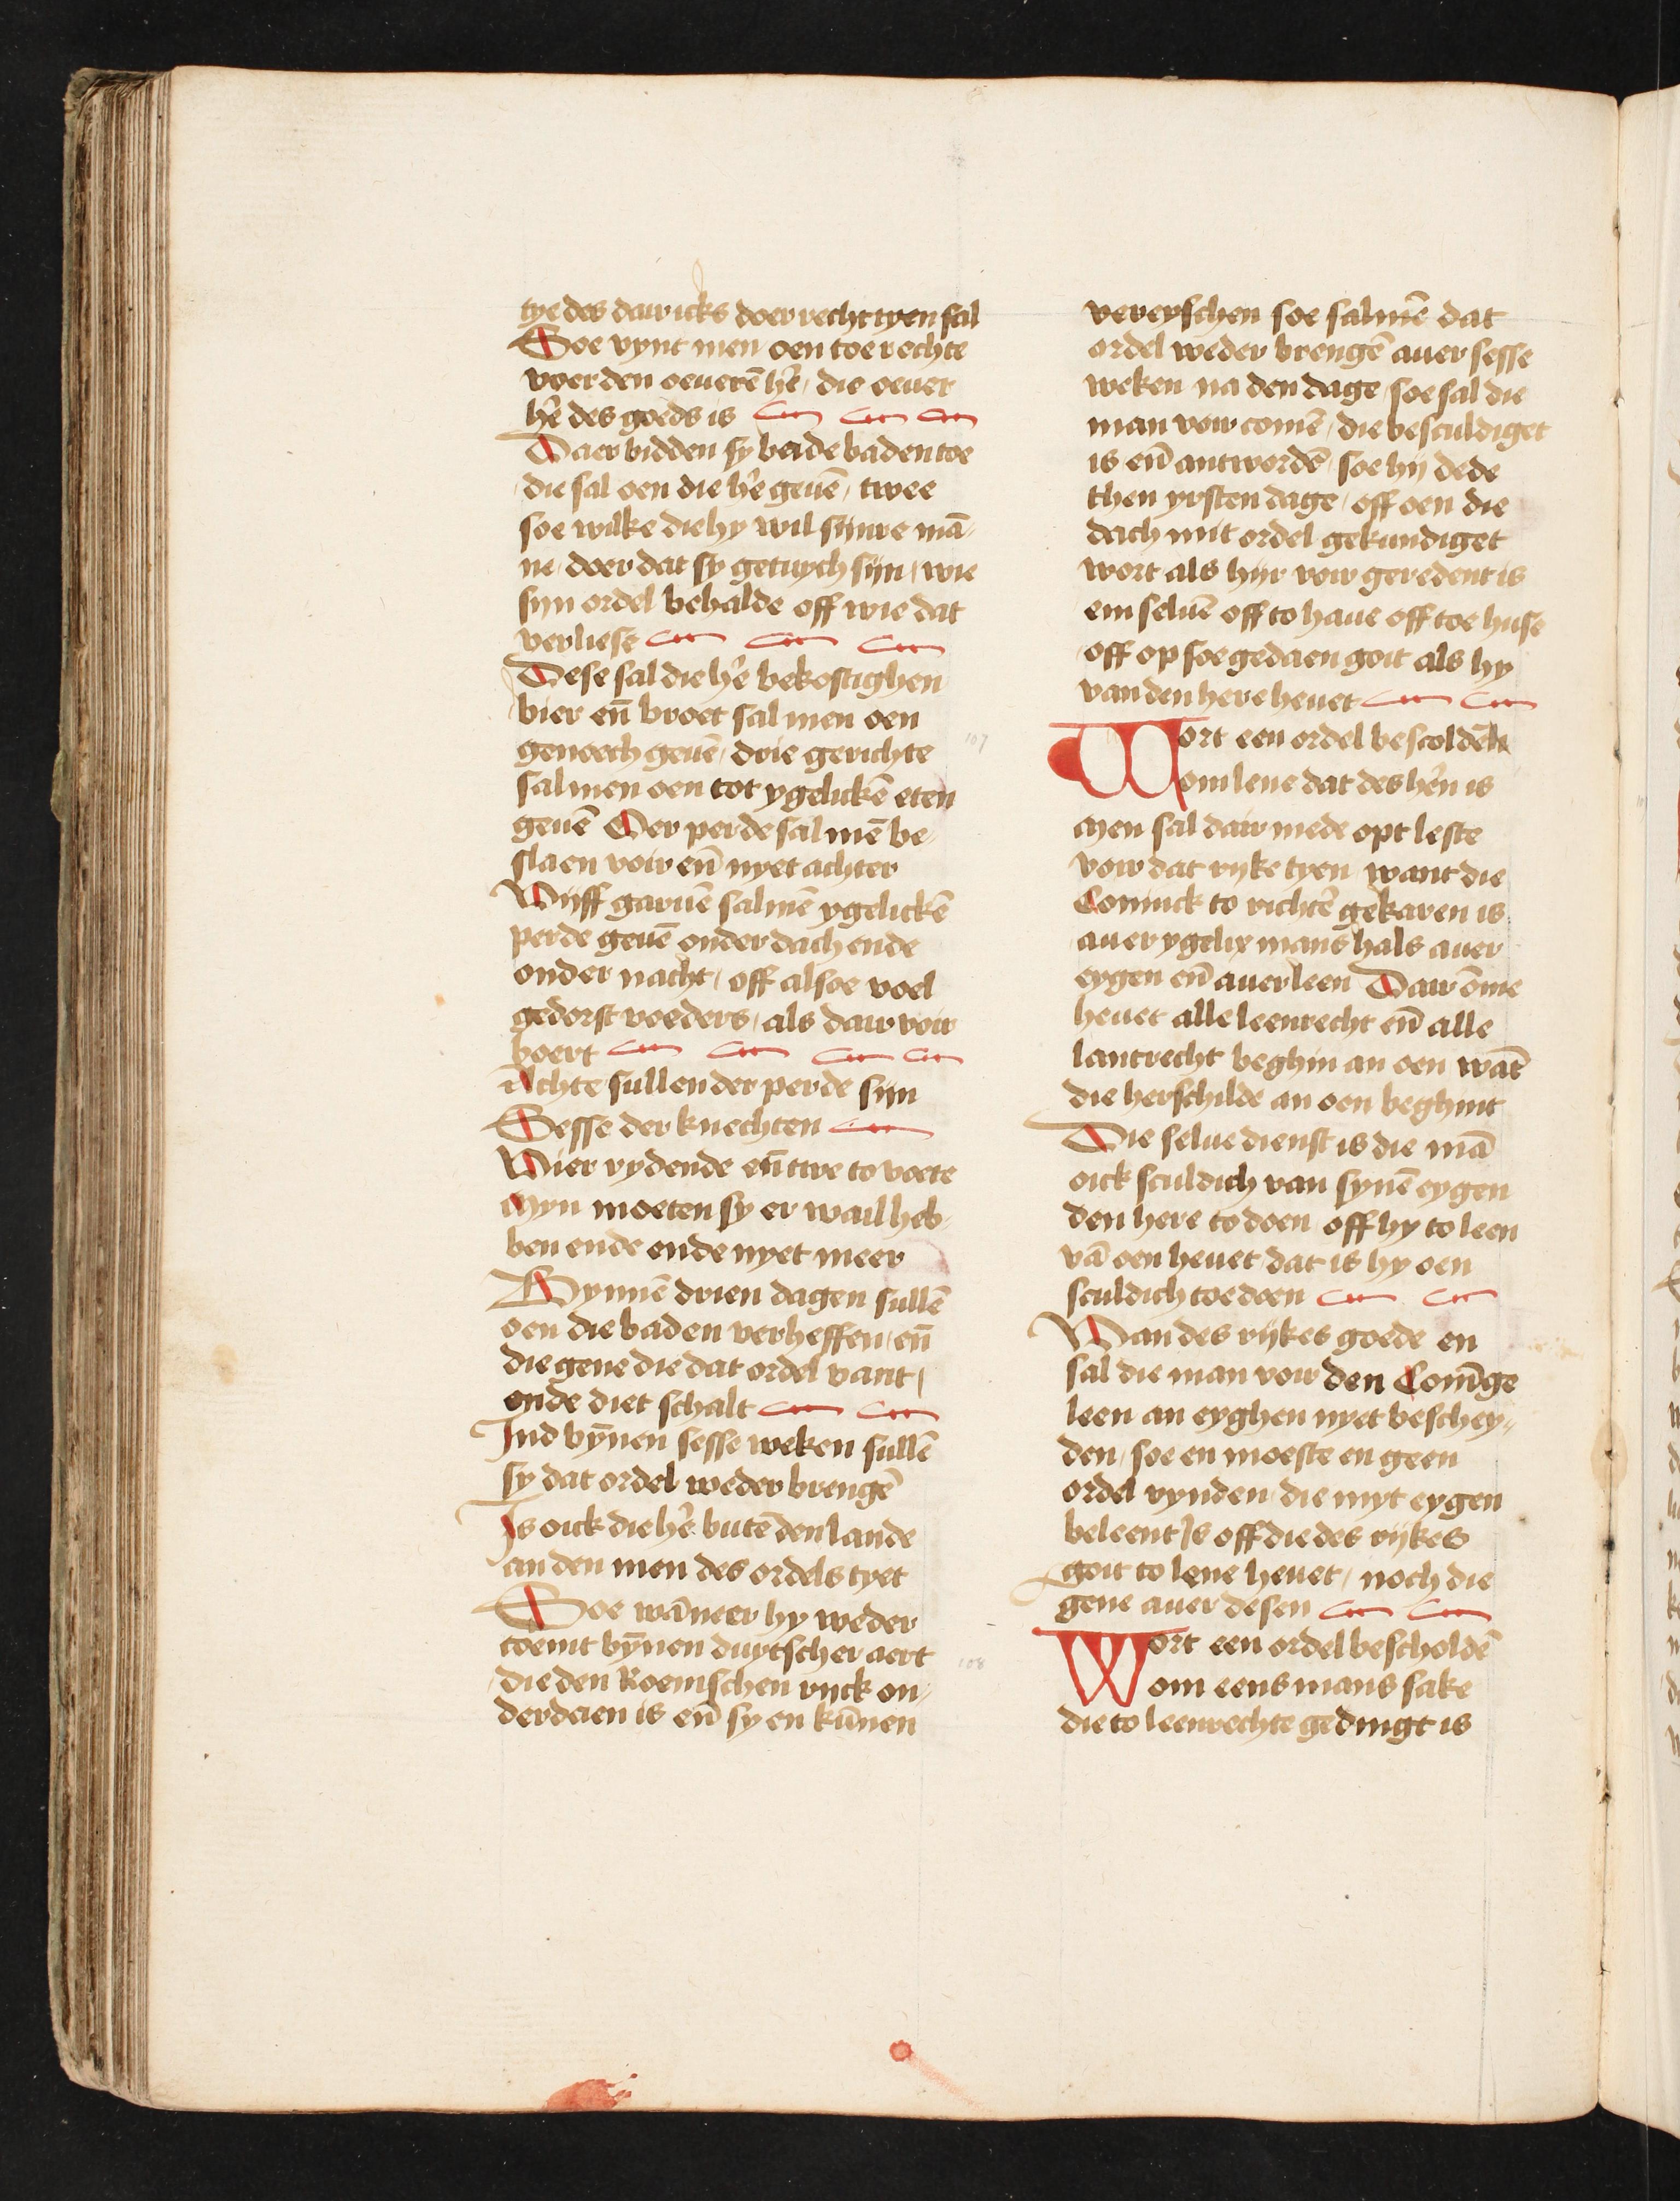 tye des dair icks doer recht tyen sal
Soe vynt men oen toe rechte
voer den oeuerē hr̄e / die oeuer
hr̄e des goeds is
Daer bidden sy beide baden toe
die sal oen die hr̄e geuē / twee
soe wilke die hy wil sijnre mā-
ne / doer dat sy getuych sijn / wie
syn ordel behalde off wie dat
verliese
Dese sal die hr̄e bekostighen
bier en̄ broet sal men oen
genoech geuē / drie gerichte
sal men oen tot ygelickē eten
geuē Oer perde sal mē be-
slaen voir en̄ nyet achter
Vijff garuē salmē ygelickē
perde geuē onder dach ende
onder nacht / off alsoe voel
gedorst voeders / als dair voir
boert
Achte sullen der perde sijn
Sesse der knechten
Vier rydende en̄ twe to voete
Myn moeten sy er wail heb-
ben ende ende nyet meer
Bynnē drien dagen sullē
oen die baden verheffen / en̄
die gene die dat ordel vant /
ende diet schalt
Ind bȳnen sesse weken sullē
sy dat ordel weder brengē
Is oick die hr̄e butē den lande
an den men des ordels tyet
Soe wāneer hy weder
coemt bȳnen duytscher aert
die den Roemschen rijck on-
derdaen is en̄ sy en kūnen
vereyschen soe salmē dat
ordel weder brengē auer sesse
weken na den dage / soe sal die
man voir comē / die besculdiget
is en̄ antwordē / soe hij dede
then yrsten dage / off oen die
dach mit ordel gekundiget
wort als hijr voir geredent is
em seluē off to haue off toe huse
off op soe gedaen goit als hy
van den here heuet
107
Wort een ordel bescoldē
om lene dat des hr̄n is
Men sal dair mede opt leste
voir dat ryke tyen / want die
Coninck to richtē gekaren is
auer ygelix mans hals auer
eygen en̄ auer leen Dair ōme
heuet alle leenrecht en̄ alle
lantrecht beghin an oen wāt
die herschilde an oen beghint
Die selue dienst is die mā
oick sculdich van synē eygen
den here to doen / off hy to leen
vā oen heuet / dat is hy oen
sculdich toe doen
Van des rijkes goede en
sal die man voir den Conīge
leen an eyghen nyet beschey-
den / soe en moeste en geen
ordel vynden / die myt eygen
beleent is off die des rijkes
goit to lene heuet / noch die
gene auer desen
108
Wort een ordel bescholdē
om eens mans sake
die to leenrechte gedingt is